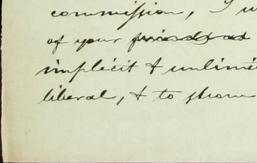 commission, I
of your friends at
implicit & unlimi
liberal, & to show